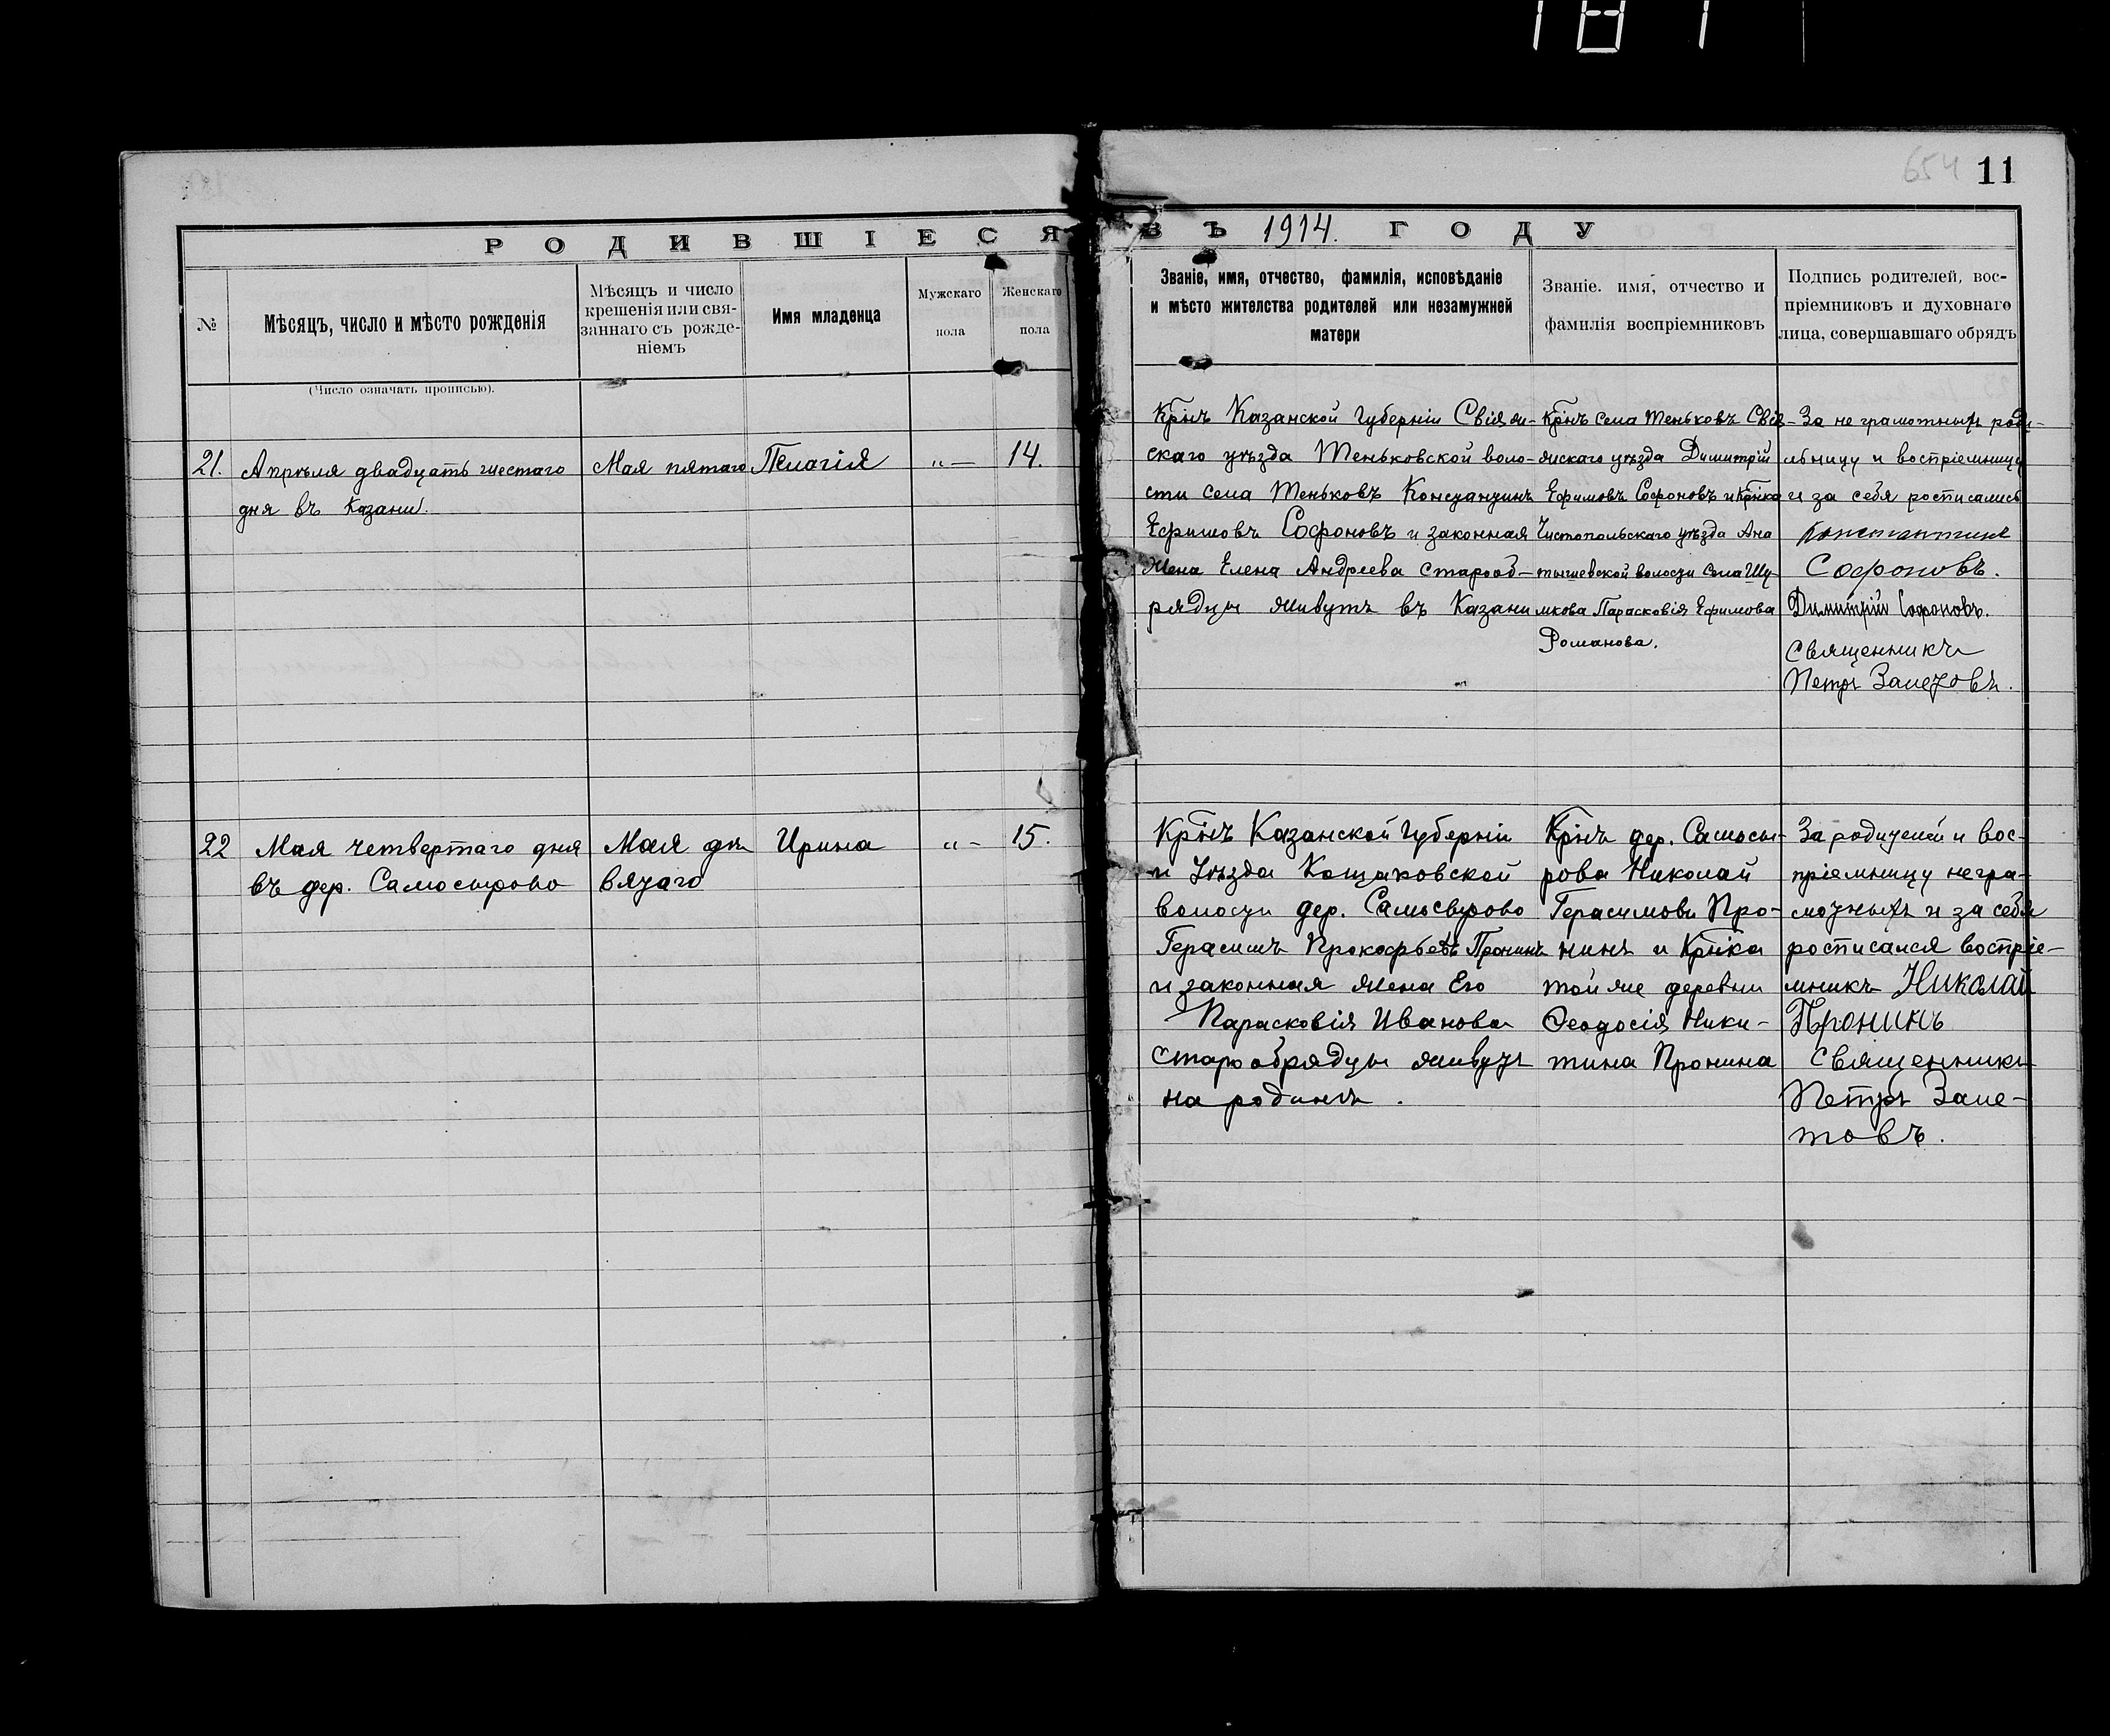 181
654 11
РОДИВШІЕСЯ ВЪ 1914. ГОДУ
№
Мѣсяцъ, число и мѣсто рожденія
Мѣсяцъ и число
крещенія или свя-
заннаго съ рожде-
ніемъ
Имя младенца
Мужскаго
пола
Женскаго
пола
Званіе, имя, отчество, фамилія, исповѣданіе
и мѣсто жителства родителей или незамужней
матери
Званіе. имя, отчество и
фамилія воспріемниковъ
Подпись родителей, вос-
пріемниковъ и духовнаго
лица, совершавшаго обрядъ
(Число означать прописью).
21.
Апрѣля двадцать шестаго
дня въ Казани.
Мая пятаго
Пелагія
„ —
14.
Крінъ Казанской Губерніи Свіяж-
скаго уѣзда Теньковской воло-
сти села Теньковъ Констанцинъ
Ефимовъ Софоновъ и законная
жена Елена Андреева старооб-
рядцы живутъ въ Казани
Крінъ села Теньковъ Свія-
жскаго уѣзда Димитрій
Ефимовъ Софоновъ и Крінка
Чистопольскаго уѣзда Ана
тышевской волости села Шу
мкова Парасковія Ефимова
Романова.
За не грамотныхъ роди-
льницу и воспріемницу
и за себя росписались
Константинъ
Софоновъ.
Димитрій Софоновъ.
Священникъ
Петръ Залетовъ.
22
Мая четвертаго дня
въ дер. Самосырово
Мая дѣ
вятаго
Ирина
„ -
15.
Крінъ Казанской Губерніи
и Уѣзда Кощаковской
волости дер. Самосырово
Герасимъ Прокофьевъ Пронинъ
и законная жена Его
Парасковія Иванова
старообрядцы живутъ
на родинѣ.
Крінъ дер. Самосы-
рова Николай
Герасимовъ Про-
нинъ и Крінка
той же деревни
Феодосія Ники-
тина Пронина
За родителей и вос-
пріемницу негра-
мотныхъ и за себя
росписался воспріе-
мникъ Николай
Пронинъ
Священникъ
Петръ Зале-
товъ.